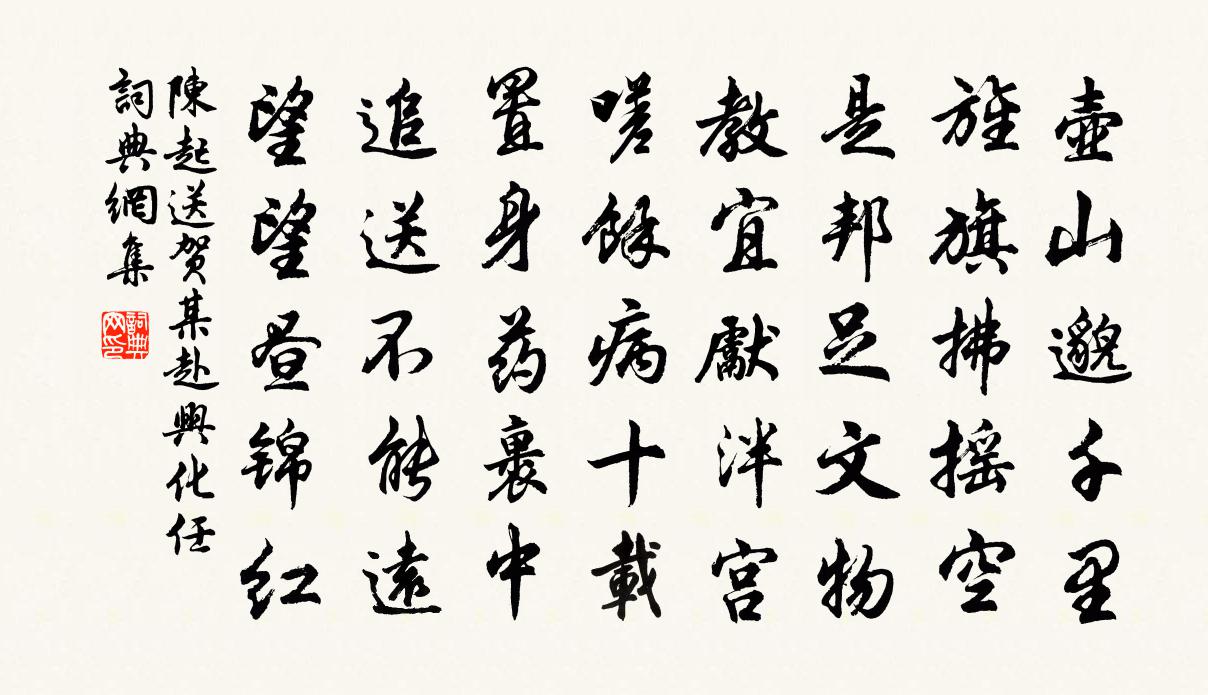 壺山邈千里
旌旗拂摇空
是邦足文物
教宜獻泮宫
嗟餘病十載
置身药裹中
追送不能遠
望望昼锦红
陳起送贺某赴興化任
詞典網集
詞典网印